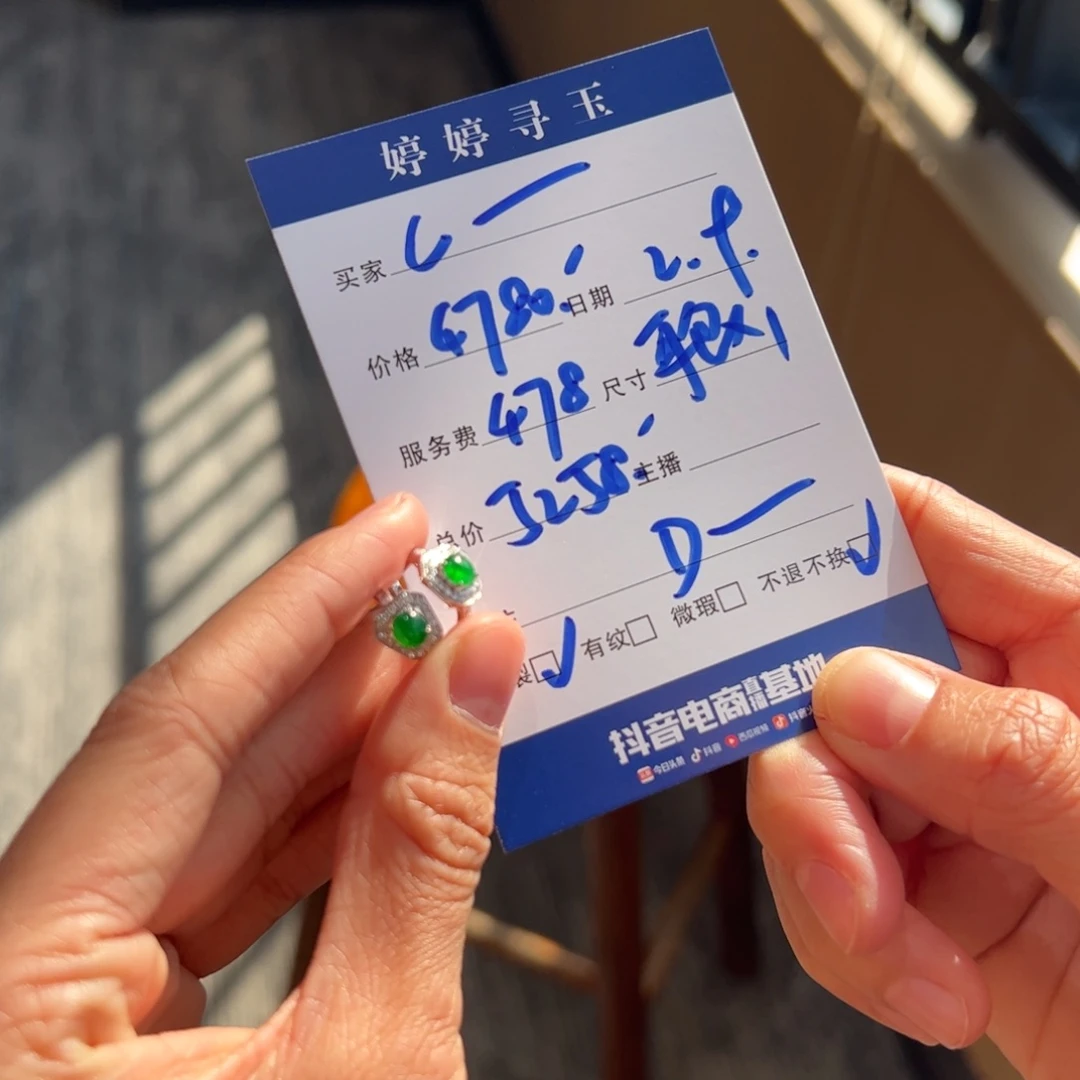 婷婷寻玉
买家 C一
价格 4780. 日期 2.9.
服务费 478 尺寸
总价 5258. 主播
D一
裂 有纹 微瑕 不退不换
抖音电商直播基地
今日头条 抖音 西瓜视频 抖音